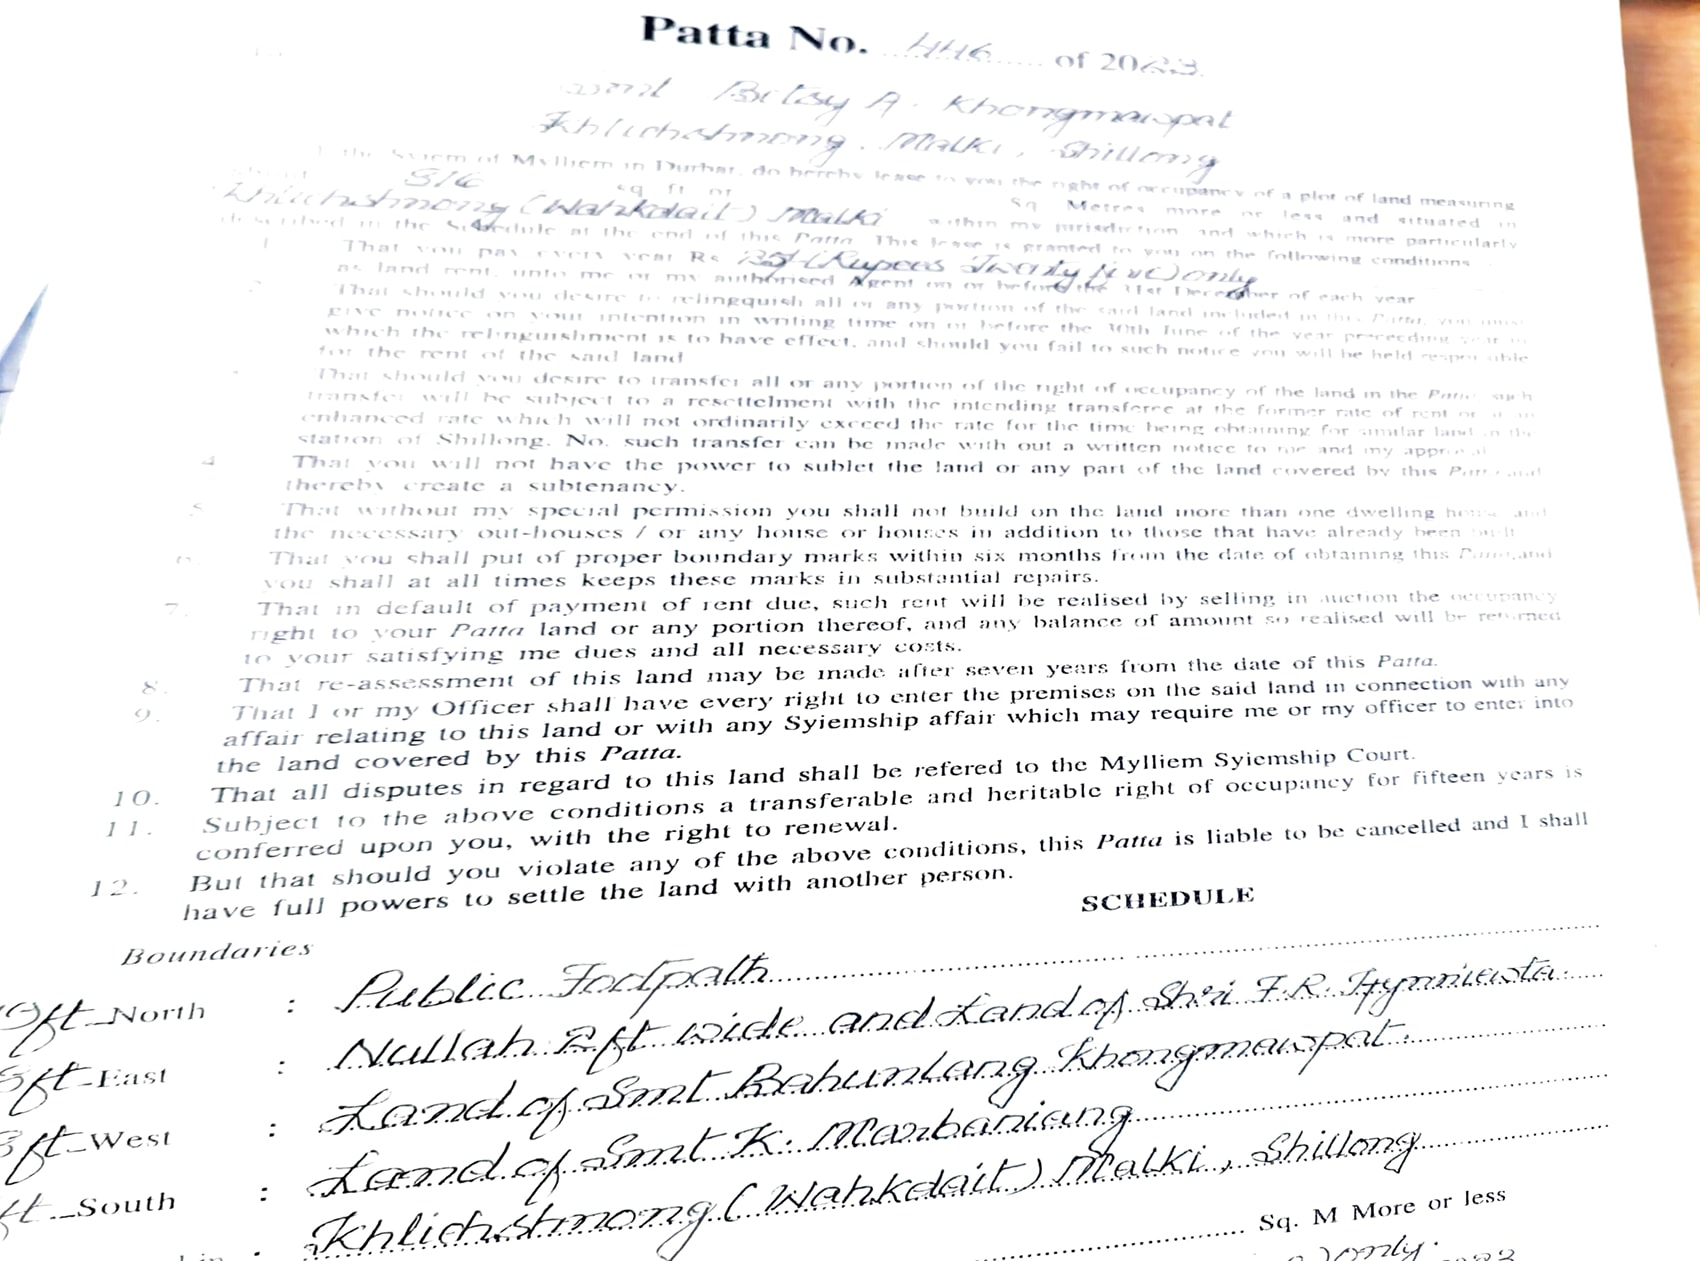 Patta No. 446 of 2023
Smt Betsy A. Khongmawpat
Khlichshnong, Malki, Shillong
I, the Syiem of Mylliem in Durbar, do hereby lease to you the right of occupancy of a plot of land measuring
about 816 sq. ft. or Sq. Metres more or less and situated in
Khlichshnong (Wahkdait) Malki within my jurisdiction and which is more particularly
described in the Schedule at the end of this Patta. This lease is granted to you on the following conditions
1. That you pay every year Rs 25/- (Rupees Twenty five) only
as land rent, unto me or my authorised Agent on or before the 31st December of each year
2. That should you desire to relingquish all or any portion of the said land included in this Patta, you must
give notice on your intention in writing time on or before the 30th June of the year preceeding year in
which the relinguishment is to have effect, and should you fail to such notice you will be held responsible
for the rent of the said land
That should you desire to transfer all or any portion of the right of occupancy of the land in the Patta such
transfer will be subject to a resettelment with the intending transferee at the former rate of rent or at an
enhanced rate which will not ordinarily exceed the rate for the time being obtaining for similar land in the
station of Shillong. No. such transfer can be made with out a written notice to me and my approval
4. That you will not have the power to sublet the land or any part of the land covered by this Patta and
thereby create a subtenancy.
5. That without my special permission you shall not build on the land more than one dwelling house and
the necessary out-houses / or any house or houses in addition to those that have already been built
6. That you shall put of proper boundary marks within six months from the date of obtaining this Patta and
you shall at all times keeps these marks in substantial repairs.
7. That in default of payment of rent due, such rent will be realised by selling in auction the occupancy
right to your Patta land or any portion thereof, and any balance of amount so realised will be returned
to your satisfying me dues and all necessary costs.
8. That re-assessment of this land may be made after seven years from the date of this Patta.
9. That I or my Officer shall have every right to enter the premises on the said land in connection with any
affair relating to this land or with any Syiemship affair which may require me or my officer to enter into
the land covered by this Patta.
10. That all disputes in regard to this land shall be refered to the Mylliem Syiemship Court.
11. Subject to the above conditions a transferable and heritable right of occupancy for fifteen years is
conferred upon you, with the right to renewal.
12. But that should you violate any of the above conditions, this Patta is liable to be cancelled and I shall
have full powers to settle the land with another person.
SCHEDULE
Boundaries
ft North : Public Footpath
ft East : Nullah 2ft wide and Land of Shri F.R. Hynniewta
ft West : Land of Smt Bahunlang Khongmawpat.
ft South : Land of Smt K. Marbaniang
: Khlichshnong (Wahkdait) Malki, Shillong
Sq. M More or less
) only.